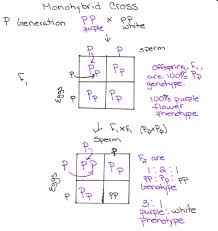 Monohybrid Cross
P Generation PP × pp
purple white
sperm
P P
F₁
Eggs
p Pp Pp
p Pp Pp
Offspring, F₁,
are 100% Pp
genotype.
100% purple
flower
phenotype
F₁×F₁ (Pp×Pp)
Sperm
P p
Eggs
P PP Pp
p Pp pp
F₂ are
1 : 2 : 1
PP : Pp : pp
genotype.
3 : 1
purple : white
phenotype